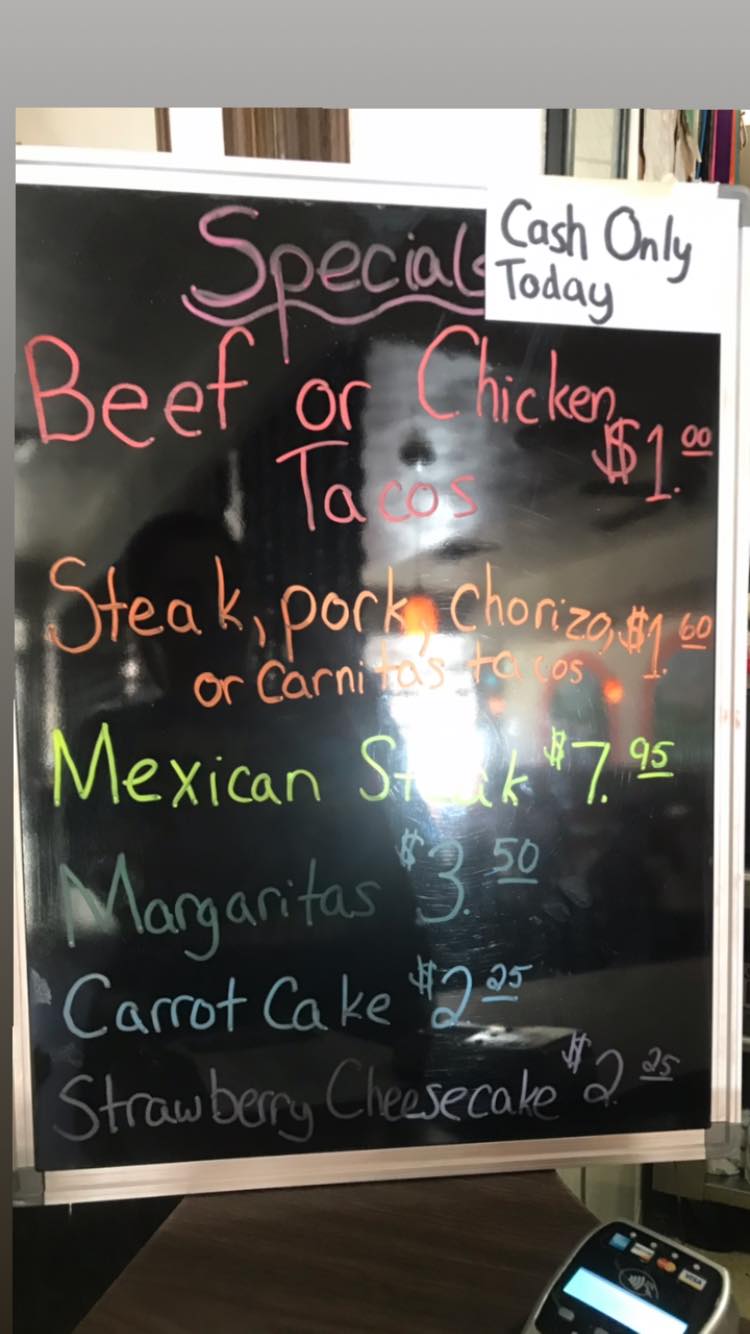 Specials
Cash Only
Today
Beef or Chicken
Tacos $1.00
Steak, pork, chorizo, $1.60
or carnitas tacos
Mexican Steak $7.95
Margaritas $3.50
Carrot Cake $2.25
Strawberry Cheesecake $2.25
VISA